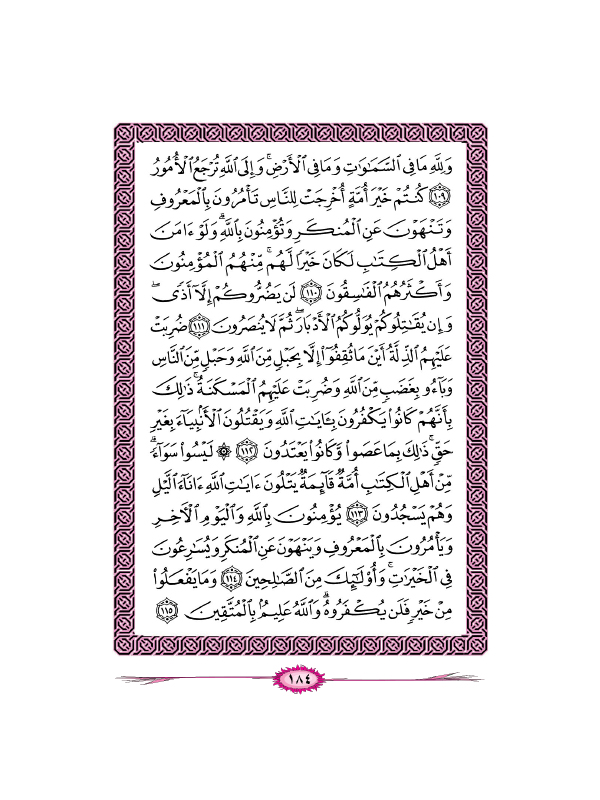 وَلِلَّهِ مَا فِي السَّمَـٰوَٰتِ وَمَا فِي الْأَرْضِ ۚ وَإِلَى اللَّهِ تُرْجَعُ الْأُمُورُ
﴿١٠٩﴾ كُنتُمْ خَيْرَ أُمَّةٍ أُخْرِجَتْ لِلنَّاسِ تَأْمُرُونَ بِالْمَعْرُوفِ
وَتَنْهَوْنَ عَنِ الْمُنكَرِ وَتُؤْمِنُونَ بِاللَّهِ ۗ وَلَوْ ءَامَنَ
أَهْلُ الْكِتَـٰبِ لَكَانَ خَيْرًا لَّهُم ۚ مِّنْهُمُ الْمُؤْمِنُونَ
وَأَكْثَرُهُمُ الْفَـٰسِقُونَ ﴿١١٠﴾ لَن يَضُرُّوكُمْ إِلَّا أَذًى ۖ
وَإِن يُقَـٰتِلُوكُمْ يُوَلُّوكُمُ الْأَدْبَارَ ۖ ثُمَّ لَا يُنصَرُونَ ﴿١١١﴾ ضُرِبَتْ
عَلَيْهِمُ الذِّلَّةُ أَيْنَ مَا ثُقِفُوٓا۟ إِلَّا بِحَبْلٍ مِّنَ اللَّهِ وَحَبْلٍ مِّنَ النَّاسِ
وَبَآءُو بِغَضَبٍ مِّنَ اللَّهِ وَضُرِبَتْ عَلَيْهِمُ الْمَسْكَنَةُ ۚ ذَٰلِكَ
بِأَنَّهُمْ كَانُوا۟ يَكْفُرُونَ بِـَٔايَـٰتِ اللَّهِ وَيَقْتُلُونَ الْأَنۢبِيَآءَ بِغَيْرِ
حَقٍّ ۚ ذَٰلِكَ بِمَا عَصَوا۟ وَّكَانُوا۟ يَعْتَدُونَ ﴿١١٢﴾ ۞ لَيْسُوا۟ سَوَآءً ۗ
مِّنْ أَهْلِ الْكِتَـٰبِ أُمَّةٌ قَآئِمَةٌ يَتْلُونَ ءَايَـٰتِ اللَّهِ ءَانَآءَ الَّيْلِ
وَهُمْ يَسْجُدُونَ ﴿١١٣﴾ يُؤْمِنُونَ بِاللَّهِ وَالْيَوْمِ الْـَٔاخِرِ
وَيَأْمُرُونَ بِالْمَعْرُوفِ وَيَنْهَوْنَ عَنِ الْمُنكَرِ وَيُسَـٰرِعُونَ
فِي الْخَيْرَٰتِ ۚ وَأُو۟لَـٰٓئِكَ مِنَ الصَّـٰلِحِينَ ﴿١١٤﴾ وَمَا يَفْعَلُوا۟
مِنْ خَيْرٍ فَلَن يُكْفَرُوهُ ۗ وَاللَّهُ عَلِيمٌۢ بِالْمُتَّقِينَ ﴿١١٥﴾
١٨٤